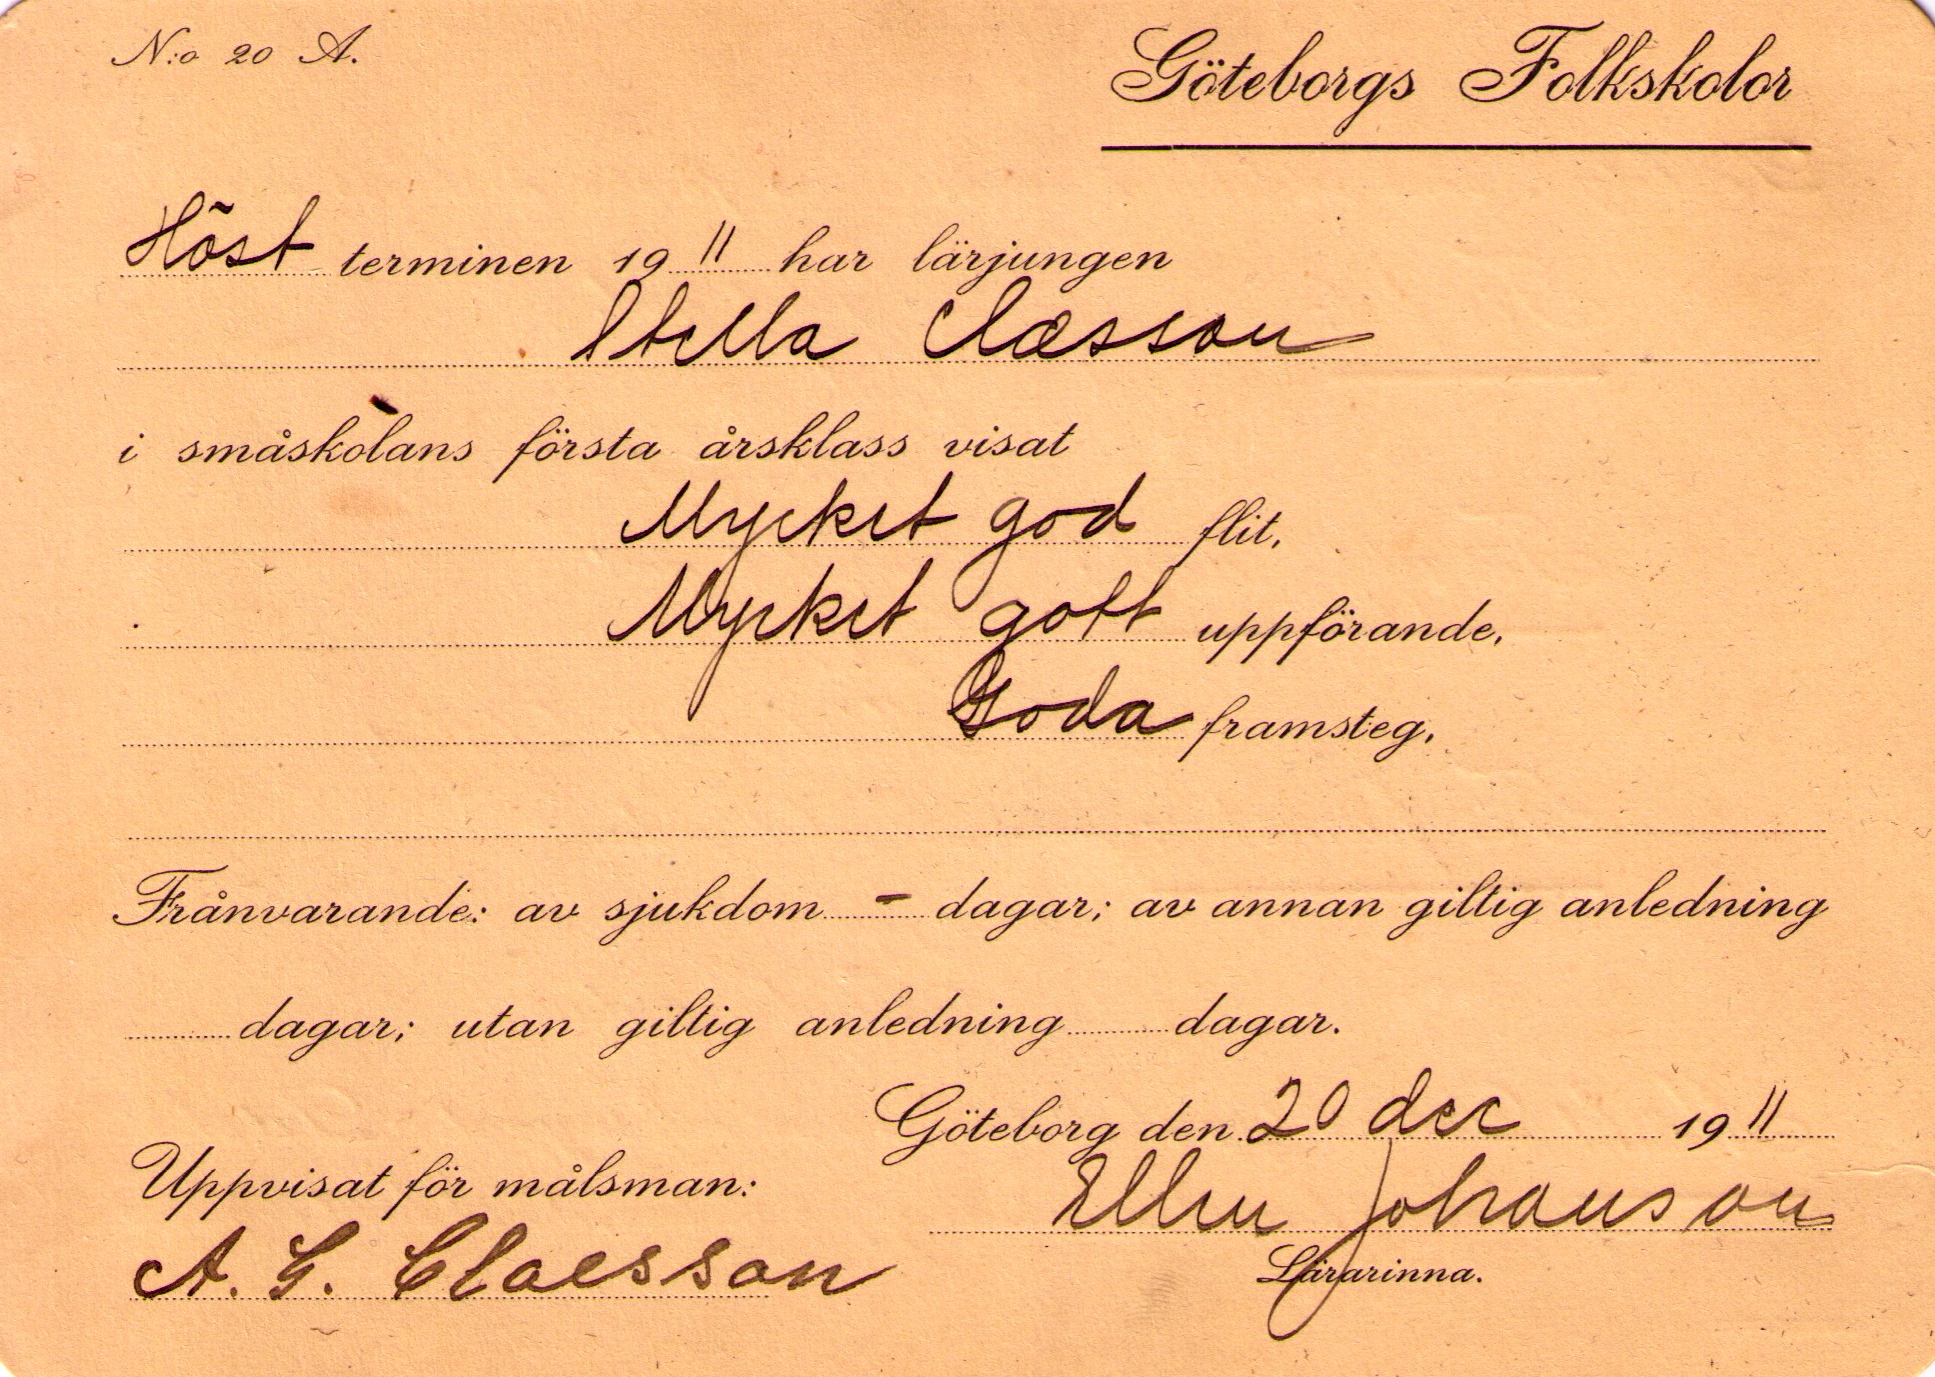 N:o 20 A.
Göteborgs Folkskolor
Höst terminen 19 11 har lärjungen
Stella Claesson
i småskolans första årsklass visat
Mycket god flit,
Mycket gott uppförande,
Goda framsteg.
Frånvarande: av sjukdom - dagar; av annan giltig anledning
dagar; utan giltig anledning dagar.
Göteborg den 20 dec 19 11
Uppvisat för målsman:
Ellen Johanson
A. G. Claesson
Lärarinna.